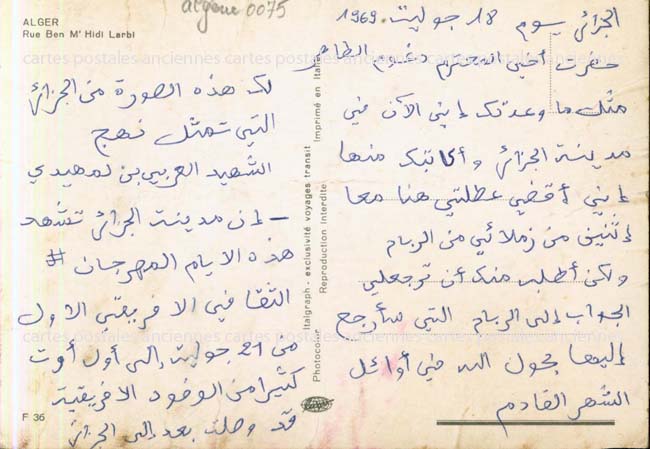 algerie 0075
ALGER
Rue Ben M' Hidi Larbi
الجزائر يوم 18 جوليت 1969
حضرت أخي المحترم دغنوم الطاهر
مثل ما وعدتك إنني الآن في
مدينة الجزائر وأكاتبك منها
إنني أقضي عطلتي هنا معا
إثنين من زملائي من الربام
ولكن أطلب منك أن ترجعلي
الجواب إلى الربام التي سأرجع
إليها بحول الله في أوائل
الشهر القادم
لك هذه الصورة من الجزائر
التي تمثل نهج
الشهيد العربي بن لمهيدي
– إن مدينة الجزائر تشهد
هذه الايام المهرجان #
الثقافي الافريقي الاول
من 21 جوليت إلى أول أوت
كثيرا من الوفود الافريقية
قد وصلت بعد إلى الجزائر
F 36
Photocolor Italgraph - exclusivité voyages transit Imprimé en Italie
Reproduction interdite
cartes postales anciennes cartes postales anciennes cartes postales anciennes
cartes postales anciennes cartes postales anciennes cartes postales anciennes